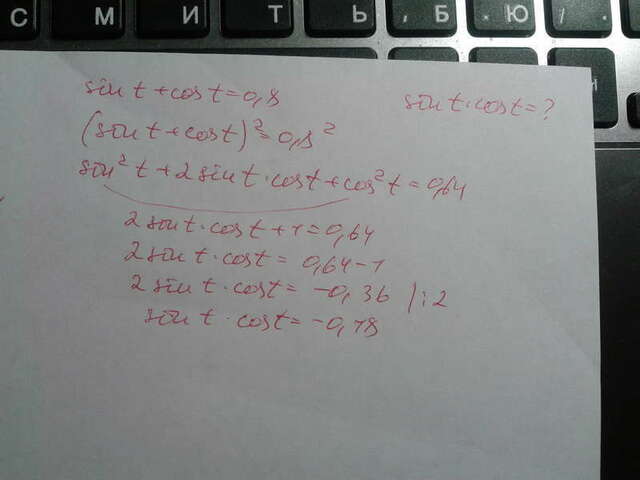 С М И Т Ь , Б . Ю /
sin t + cos t = 0,8
sin t · cos t = ?
(sin t + cos t)² = 0,8²
sin² t + 2 sin t · cos t + cos² t = 0,64
2 sin t · cos t + 1 = 0,64
2 sin t · cos t = 0,64 - 1
2 sin t · cos t = -0,36 / : 2
sin t · cos t = -0,18